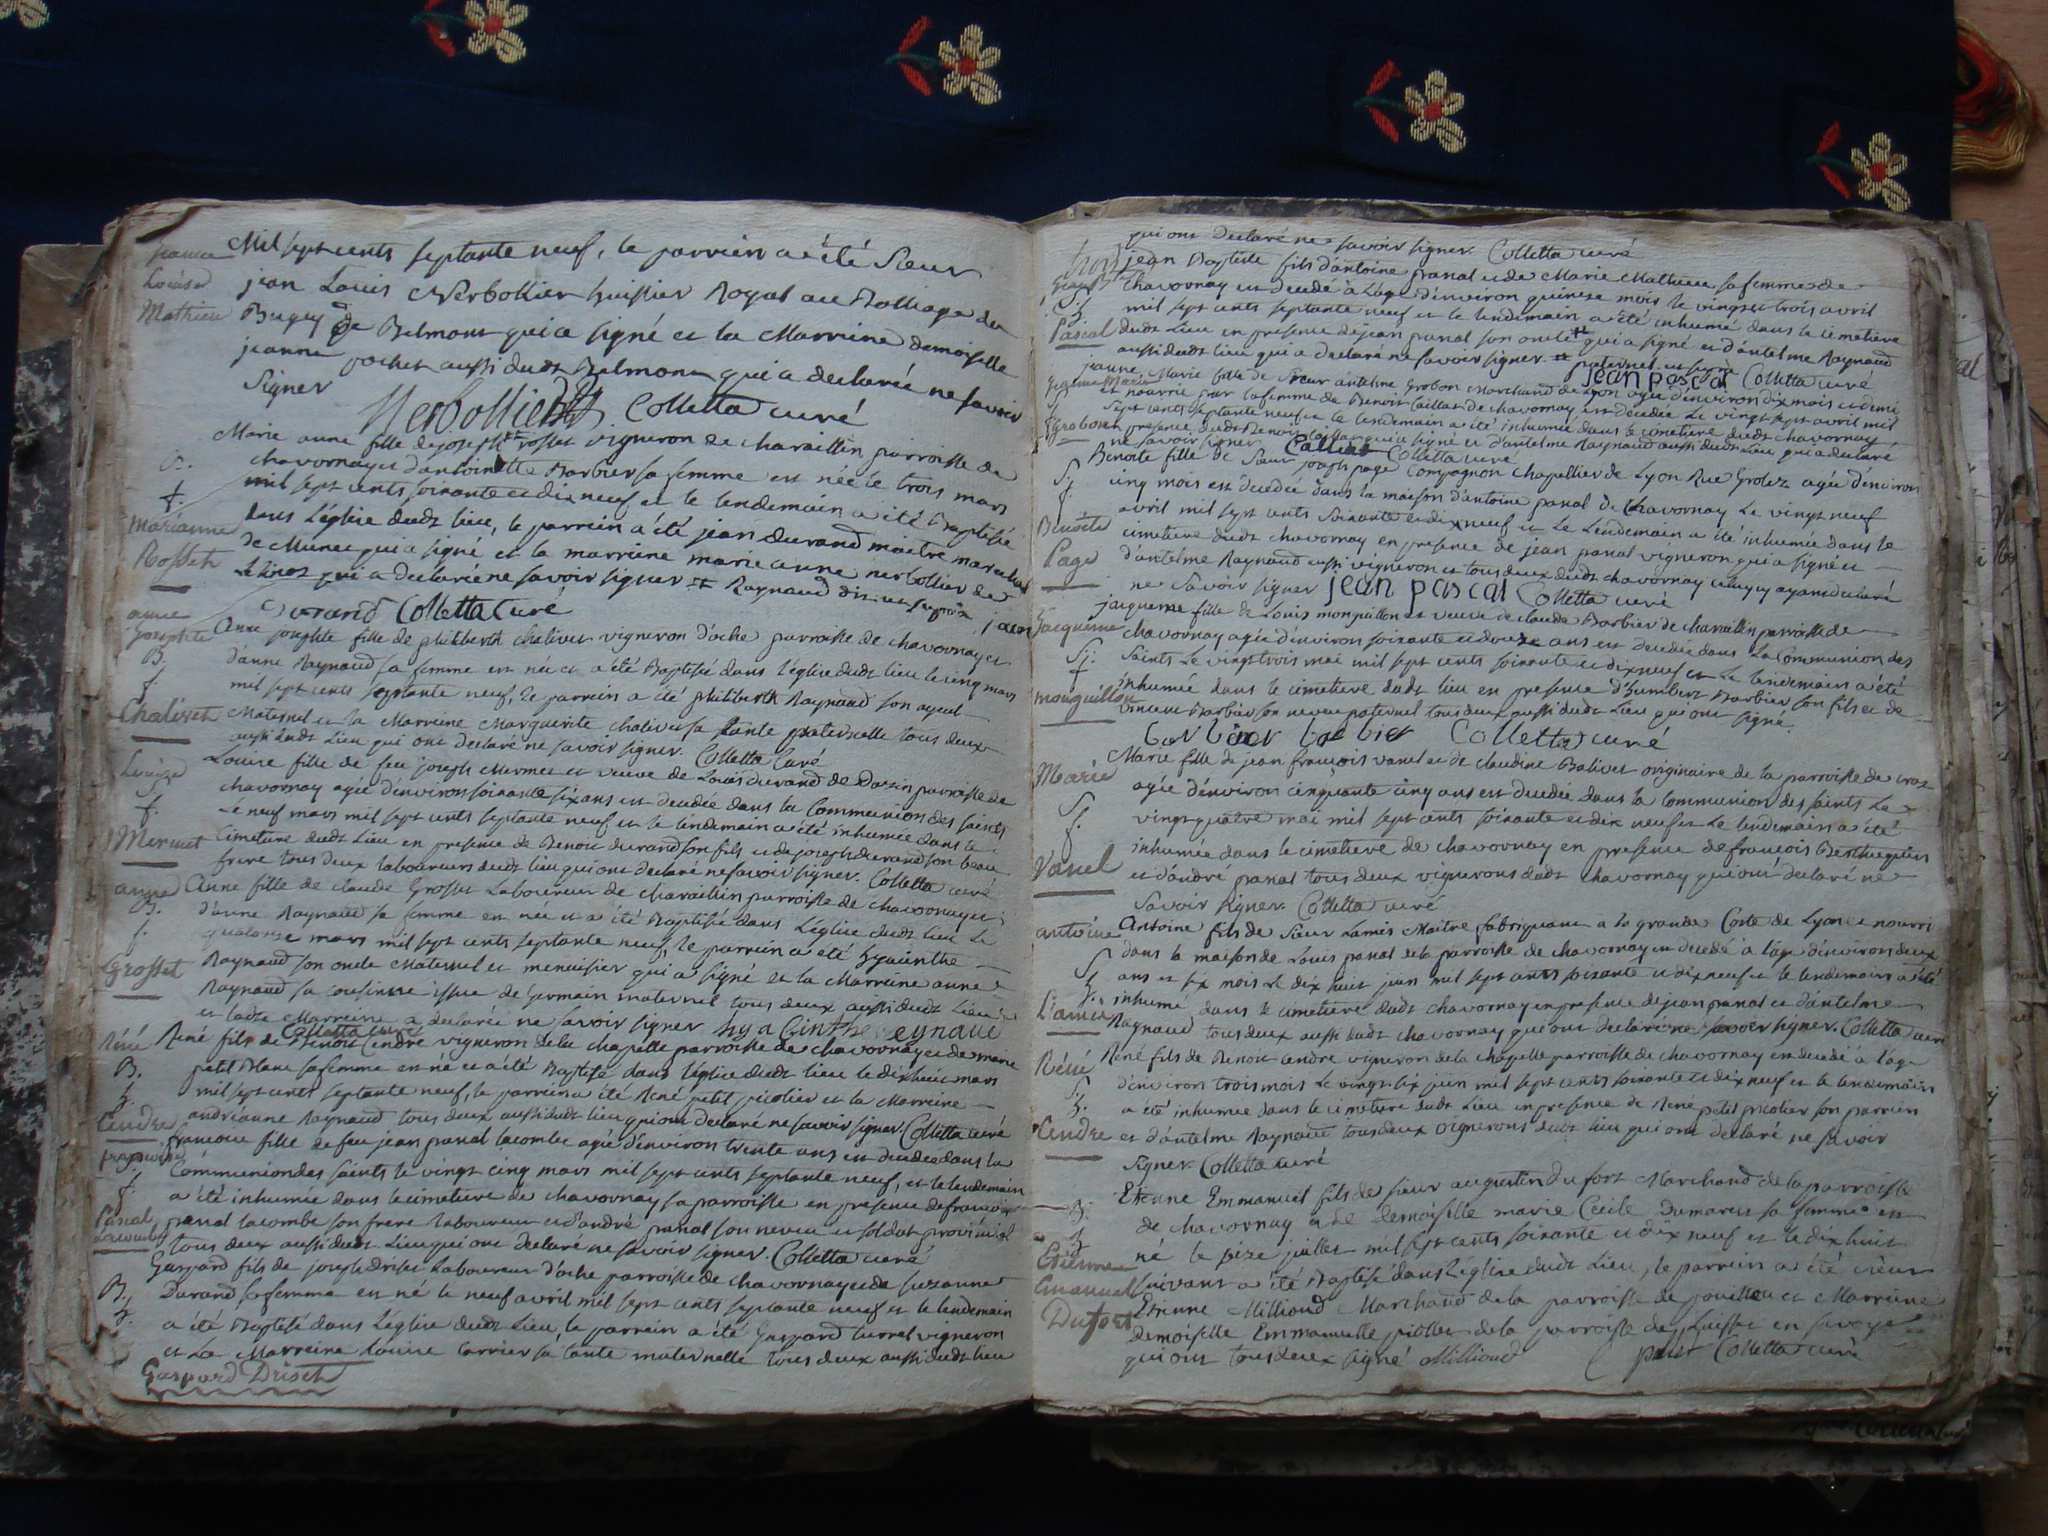 france
Louise
Mathieu
Mil sept cents septante neuf, le parrein a été Sieur
jean Louis Nerbollier huissier Royal au Balliage de
Bugey de Belmont qui a signé et la Marreine demoiselle
jeanne pochet aussi dudt Belmont qui a declarée ne savoir
Signer Nerbollier Colletta curé
B.
f.
marianne
Rosset
Marie anne fille de joseph rosset vigneron de charaillin parroisse de
chavornay et d'antoinette Barbier sa femme est née le trois mars
mil sept cents soixante et dix neuf et le lendemain a été Baptisée
dans l'église dudt lieu, le parrein a été jean durand maitre marechal
de Munet qui a signé et la marreine marie anne nerbollier de
qui a declarée ne savoir signer Raynaud
Durand Colletta Curé
anne
josephte
B.
f.
Chalivet
Anne josephte fille de philiberth chalivet vigneron d'oche parroisse de chavornay et
d'anne Raynaud sa femme est née et a été Baptisée dans l'église dudt lieu le cinq mars
mil sept cents septante neuf, le parrein a été philiberth Raynaud son ayeul
Maternel et la Marreine Marguerite chalivet sa tante paternelle tous deux
aussi dudt Lieu qui ont declaré ne savoir signer. Colletta Curé
Louise
S.
f.
Mermet
Louise fille de feu joseph Mermet et veuve de Louis durand de Dazin parroisse de
chavornay agée d'environ soixante six ans est decedée dans la Communion des saints
Le neuf mars mil sept cents septante neuf et le lendemain a été inhumée dans le
Cimetiere dudt Lieu en presence de Benoit durand son fils et de joseph durand son beau
frere tous deux laboureurs dudt lieu qui ont declaré ne savoir signer. Colletta curé
anne
B.
f.
Grosset
Anne fille de claude Grosset Laboureur de charaillin parroisse de chavornay et
d'anne Raynaud sa femme est née et a été Baptisée dans L'église dudt lieu Le
quatorze mars mil sept cents septante neuf, le parrein a été hyacinthe
Raynaud son oncle Maternel et menuisier qui a signé et la Marreine anne
Raynaud sa cousinne issue de Germain maternel tous deux aussi dudt Lieu
et ladte Marreine a declarée ne savoir signer hyacinthe reynaud
Colletta curé
Réné
B.
f.
Cendre
René fils de Benoit Cendre vigneron de la chapelle parroisse de chavornay et de marie
petit Blanc sa femme est né et a été Baptisé dans l'église dudt lieu le dixhuit mars
mil sept cents septante neuf, le parrein a été René petit picolier et la Marreine
andréanne Raynaud tous deux aussi dudt lieu qui ont declaré ne savoir signer. Colletta curé
françoise
S.
f.
Pascal
Lacombe
francoise fille de feu jean panal lacombe agée d'environ trente ans est decedée dans la
Communion des saints le vingt cinq mars mil sept cents septante neuf, et le lendemain
a été inhumée dans le cimetiere de chavornay sa parroisse en presence de francois
panal lacombe son frere laboureur et d'andré panal son neveu et soldat provincial
tous deux aussi dudt Lieu qui ont declaré ne savoir signer. Colletta curé
B.
f.
Gaspard fils de joseph driset Laboureur d'oche parroisse de chavornay et de suzanne
Durand sa femme est né le neuf avril mil sept cents septante neuf et le lendemain
a été Baptisé dans L'église dudt Lieu, le parrein a été Gaspard turrel vigneron
et La Marreine Louise Carrier sa tante maternelle tous deux aussi dudt lieu
Gaspard Driset
qui ont Declaré ne savoir signer. Colletta curé
S.
f.
Pascal
jean Baptiste fils d'antoine panal et de Marie Mathieu sa femme de
Chavornay est decedé à L'age d'environ quinze mois le vingt trois avril
mil sept cents septante neuf et le lendemain a été inhumé dans le cimetiere
dudt Lieu en presence de jean panal son oncle qui a signé et d'antelme Raynaud
aussi dudt lieu qui a declaré ne savoir signer paternel
jean pascal Colletta curé
jeanne Marie
S.
f.
grobon
jeanne Marie fille de Sieur antelme Grobon Marchand de Lyon agée d'environ dix mois et demi
et nourrie par la femme de Benoit Caillat de chavornay est decedée Le vingt sept avril mil
sept cents septante neuf et le lendemain a été inhumée dans le cimetiere dudt chavornay
en presence dudt Benoit Caillat qui a signé et d'antelme Raynaud aussi dudt Lieu qui a declaré
ne savoir signer Calliat Colletta curé
S.
f.
Benoite
Page
Benoite fille de Sieur joseph page Compagnon Chapellier de Lyon Rue Grolez agée d'environ
cinq mois est decedée dans la maison d'antoine panal de Chavornay Le vingt neuf
avril mil sept cents soixante et dix neuf et Le Lendemain a été inhumée dans le
cimetiere dudt chavornay en presence de jean panal vigneron qui a signé et
d'antelme Raynaud aussi vigneron et tous deux dudt chavornay celuy cy ayant declaré
ne savoir signer jean pascal Colletta curé
jacqueme
S.
f.
monguillon
jacqueme fille de Louis monguillon et veuve de claude Barbier de charaillin parroisse de
chavornay agée d'environ soixante et douze ans est decedée dans La Communion des
Saints Le vingt trois mai mil sept cents soixante et dix neuf et Le lendemain a été
inhumée dans le cimetiere dudt lieu en presence d'humbert Barbier son fils et de
vincent Barbier son neveu paternel tous deux aussi dudt Lieu qui ont signé.
barbier barbier Colletta curé
Marie
S.
f.
Vanel
Marie fille de jean francois vanel et de claudine Balivet originaire de la parroisse de
agée d'environ cinquante cinq ans est decedée dans la communion des saints Le
vingt quatre mai mil sept cents soixante et dix neuf et Le lendemain a été
inhumée dans le cimetiere de chavornay en presence de francois
et d'andré panal tous deux vignerons dudt chavornay qui ont declaré ne
Savoir signer. Colletta curé
antoine
S.
f.
Lamis
Antoine fils de Sieur Lamis Maitre fabriquant a la grande Coste de Lyon et nourri
dans la maison de Louis panal de la parroisse de chavornay est decedé à l'age d'environ deux
ans et six mois le dix huit juin mil sept cents soixante et dix neuf et le lendemain a été
inhumé dans le cimetiere dudt chavornay en presence de jean panal et d'antelme
Raynaud tous deux aussi dudt chavornay qui ont declaré ne savoir signer. Colletta curé
Réné
S.
f.
Cendre
René fils de Benoit Cendre vigneron de la chapelle parroisse de chavornay est decedé à l'age
d'environ trois mois Le vingt six juin mil sept cents soixante et dix neuf et le lendemain
a été inhumé dans le cimetiere dudt Lieu en presence de René petit picolier son parrein
et d'antelme Raynaud tous deux vignerons dudt lieu qui ont declaré ne savoir
signer. Colletta curé
B.
f.
Etienne
Emanuel
Dufort
Etienne Emmanuel fils de sieur augustin du fort Marchand de la parroisse
de chavornay et de demoiselle marie Cecile Dumarest sa femme est
né le seize juillet mil sept cents soixante et dix neuf et le dix huit
suivant a été Baptisé dans l'église dudt Lieu, le parrein a été sieur
Etienne Millioud Marchand de la parroisse de et Marreine
demoiselle Emmanuelle de la parroisse de en savoye
qui ont tous deux signé Millioud Colletta curé